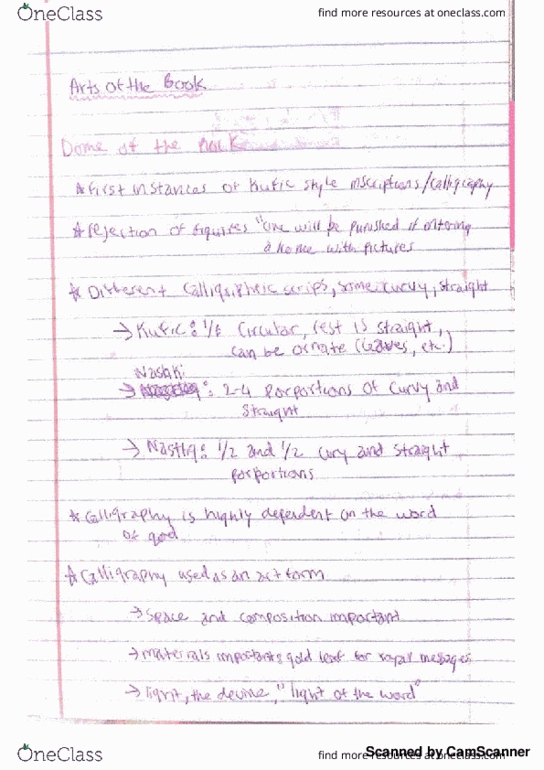 OneClass
find more resources at oneclass.com
Arts of the Book
Dome of the Rock
* First instances of Kufic style inscriptions/calligraphy
* rejection of figures "one will be punished if entering
a home with pictures
* Different calligraphic scrips, some curvy, straight
→ Kufic: 1/6 circular, rest is straight,
can be ornate (leaves, etc.)
Nashki
→ : 2-4 Porportions of curvy and
straight
→ Nastliq: 1/2 and 1/2 curvy and straight
porportions
* Calligraphy is highly dependent on the word
of god
* Calligraphy used as an art form
→ space and composition important
→ materials important: gold leaf for royal messages
→ light, the devine, "light of the word"
OneClass
find more resources at oneclass.com
Scanned by CamScanner